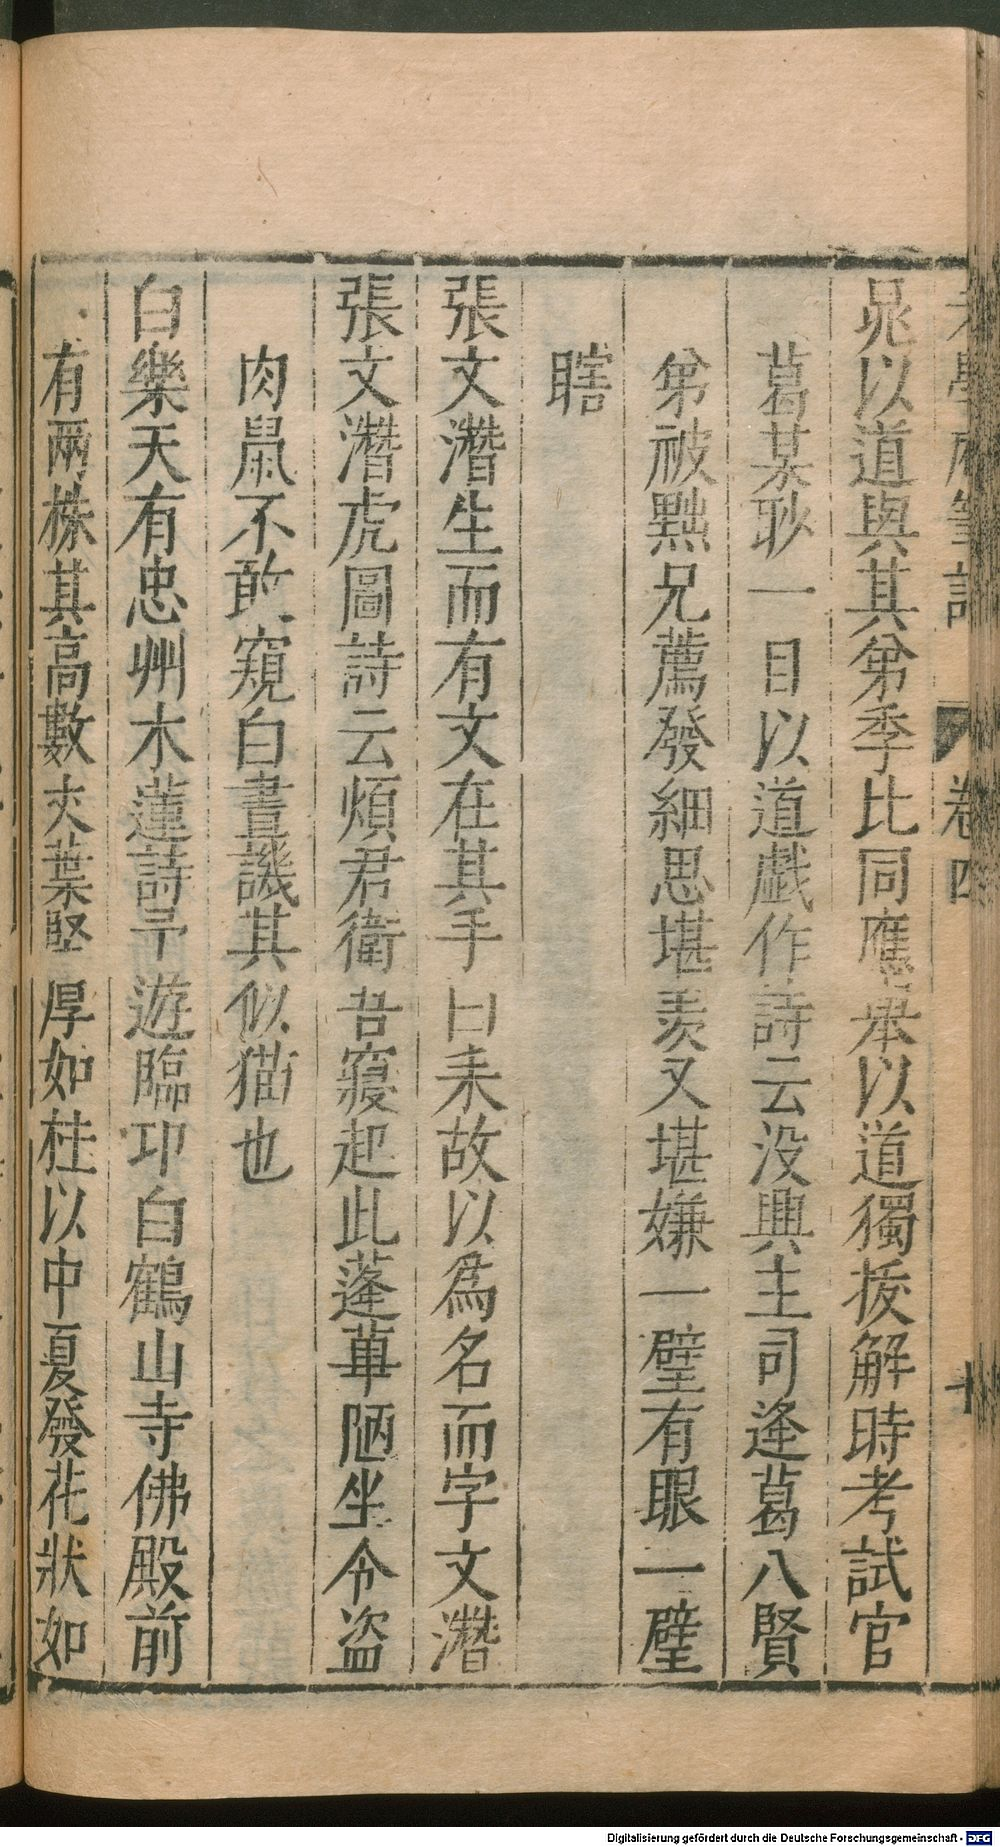 老學庵筆記 卷四 十
晁以道與其弟季比同應舉以道獨拔解時考試官
葛某眇一目以道戲作詩云没興主司逢葛八賢
弟被黜兄薦發細思堪羨又堪嫌一壁有眼一壁
瞎
張文潛生而有文在其手曰耒故以爲名而字文潛
張文潛虎圖詩云煩君衛吾寢起此蓬蓽陋坐令盜
肉鼠不敢窺白晝譏其似猫也
白樂天有忠州木蓮詩予遊臨邛白鶴山寺佛殿前
有兩株其高數丈葉堅厚如桂以中夏發花狀如
Digitalisierung gefördert durch die Deutsche Forschungsgemeinschaft - DFG